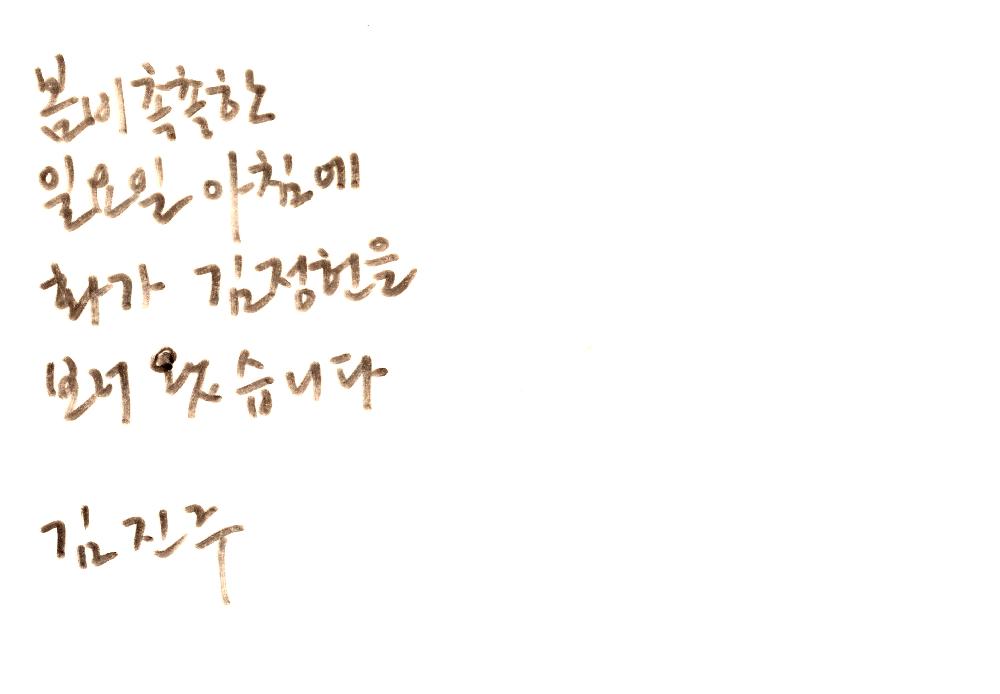 봄이 촉촉한
일요일 아침에
화가 김정헌을
보러 왔습니다
김진주